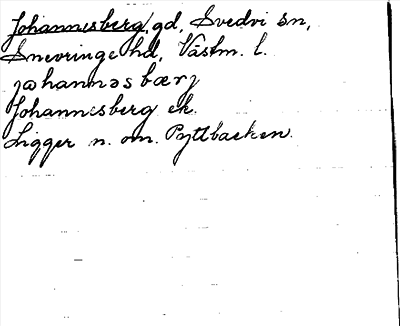 Johannesberg, gd, Svedvi sn,
Snevringe hd, Västm. l.
jɷhannəsbærj
Johannesberg ek.
Ligger n. om Pyttbacken.